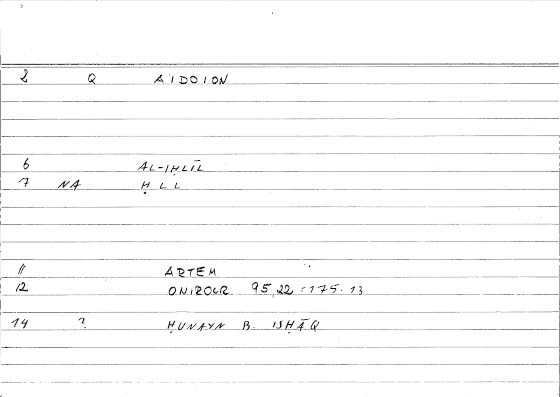 2 Q AIDOION
6 AL-IḤLĪL
7 NA ḤLL
11 ARTEM
12 ONIROCR 95,22 : 175.13
14 ? ḤUNAYN B. ISḤĀQ